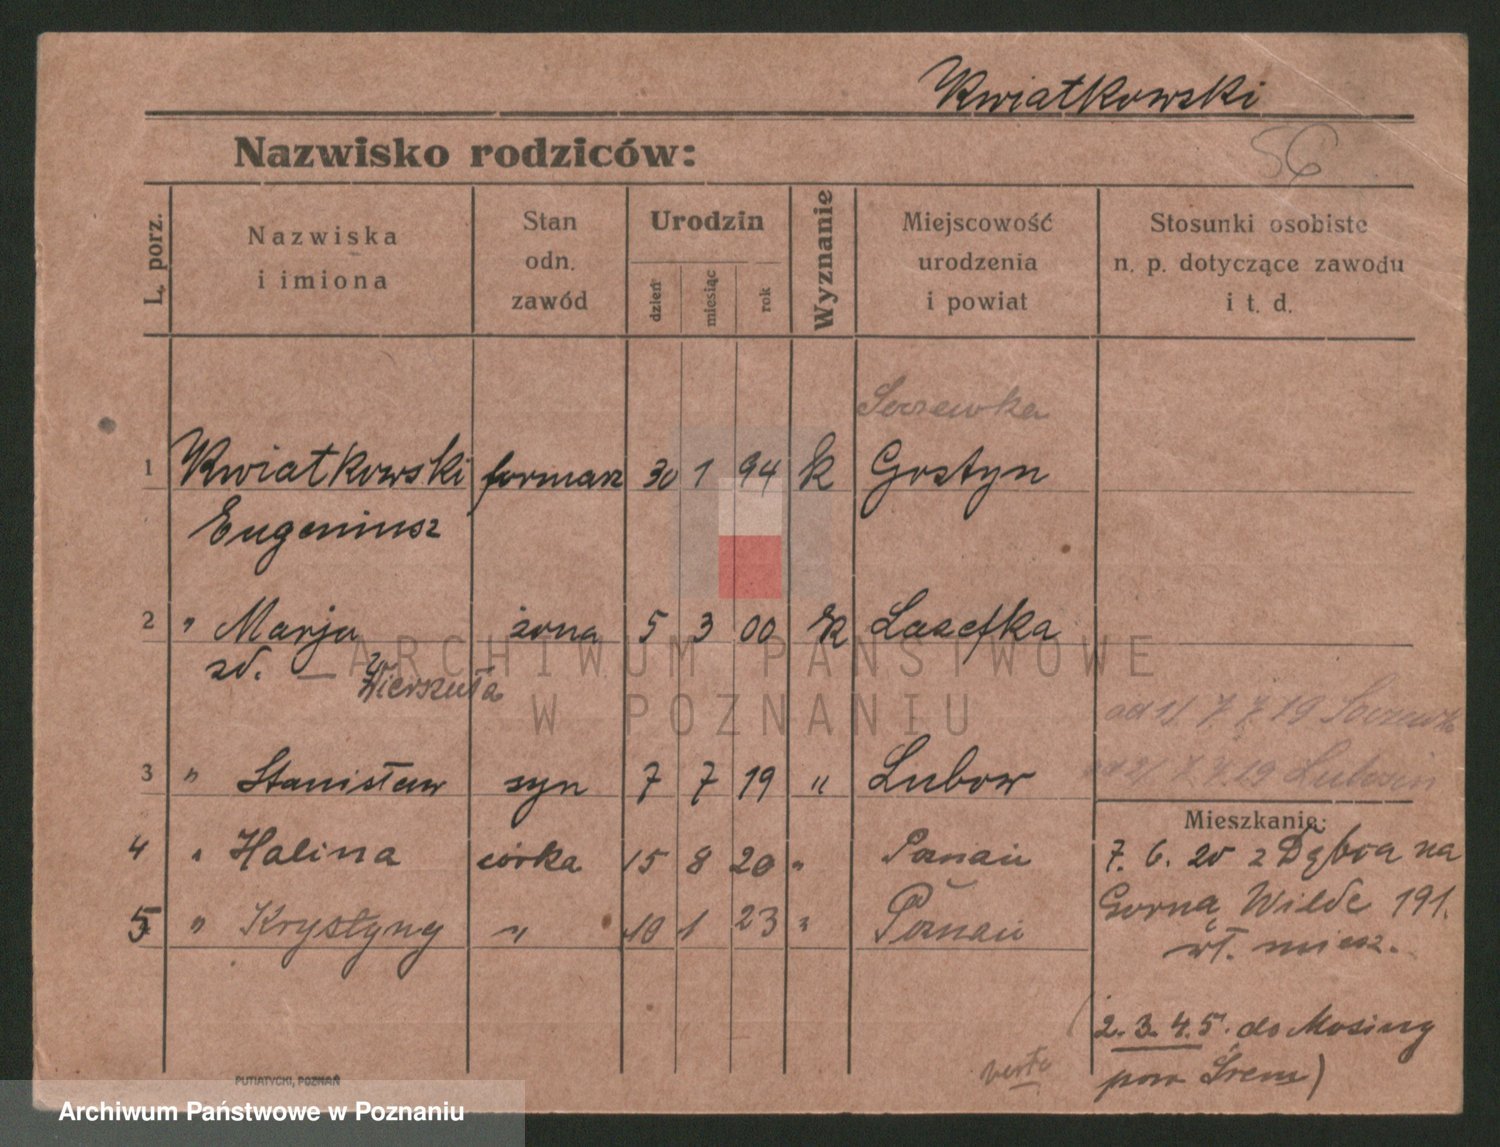 Kwiatkowski
56
Nazwisko rodziców:
L. porz.
Nazwiska
i imiona
Stan
odn.
zawód
Urodzin
dzień
miesiąc
rok
Wyznanie
Miejscowość
urodzenia
i powiat
Stosunki osobiste
n. p. dotyczące zawodu
i t. d.
1 Kwiatkowski formarz 30 1 94 k Gostyn
Eugeniusz
2 " Marja żona 5 3 00 k
zd. Wierszuła
ARCHIWUM PAŃSTWOWE
W POZNANIU
od 1/ 7. 7. 19
3 " Stanisław syn 7 7 19 " Lubow
2/ 7. 7. 19
Mieszkanie:
4 " Halina córka 15 8 20 " Poznań
7. 6. 20 z Dębca na
Gorną Wilde 191.
5 " Krystyny " 10 1 23 " Poznań
wł. miesz.
(2. 3. 4. 5. do Mosiny
pow Śrem)
verte
PUTIATYCKI, POZNAŃ
Archiwum Państwowe w Poznaniu